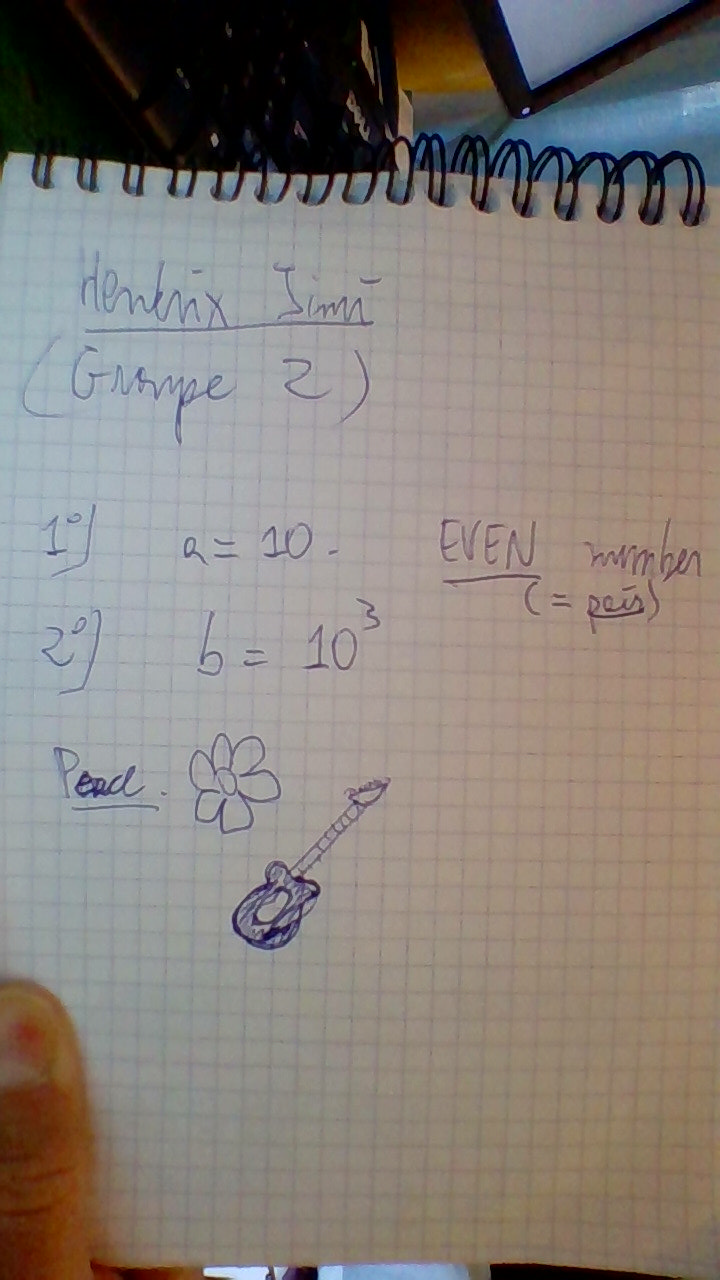 Hendrix Jimi
(Groupe 2)
1°) a = 10.
EVEN number
(= pair)
2°) b = 10³
Peace.